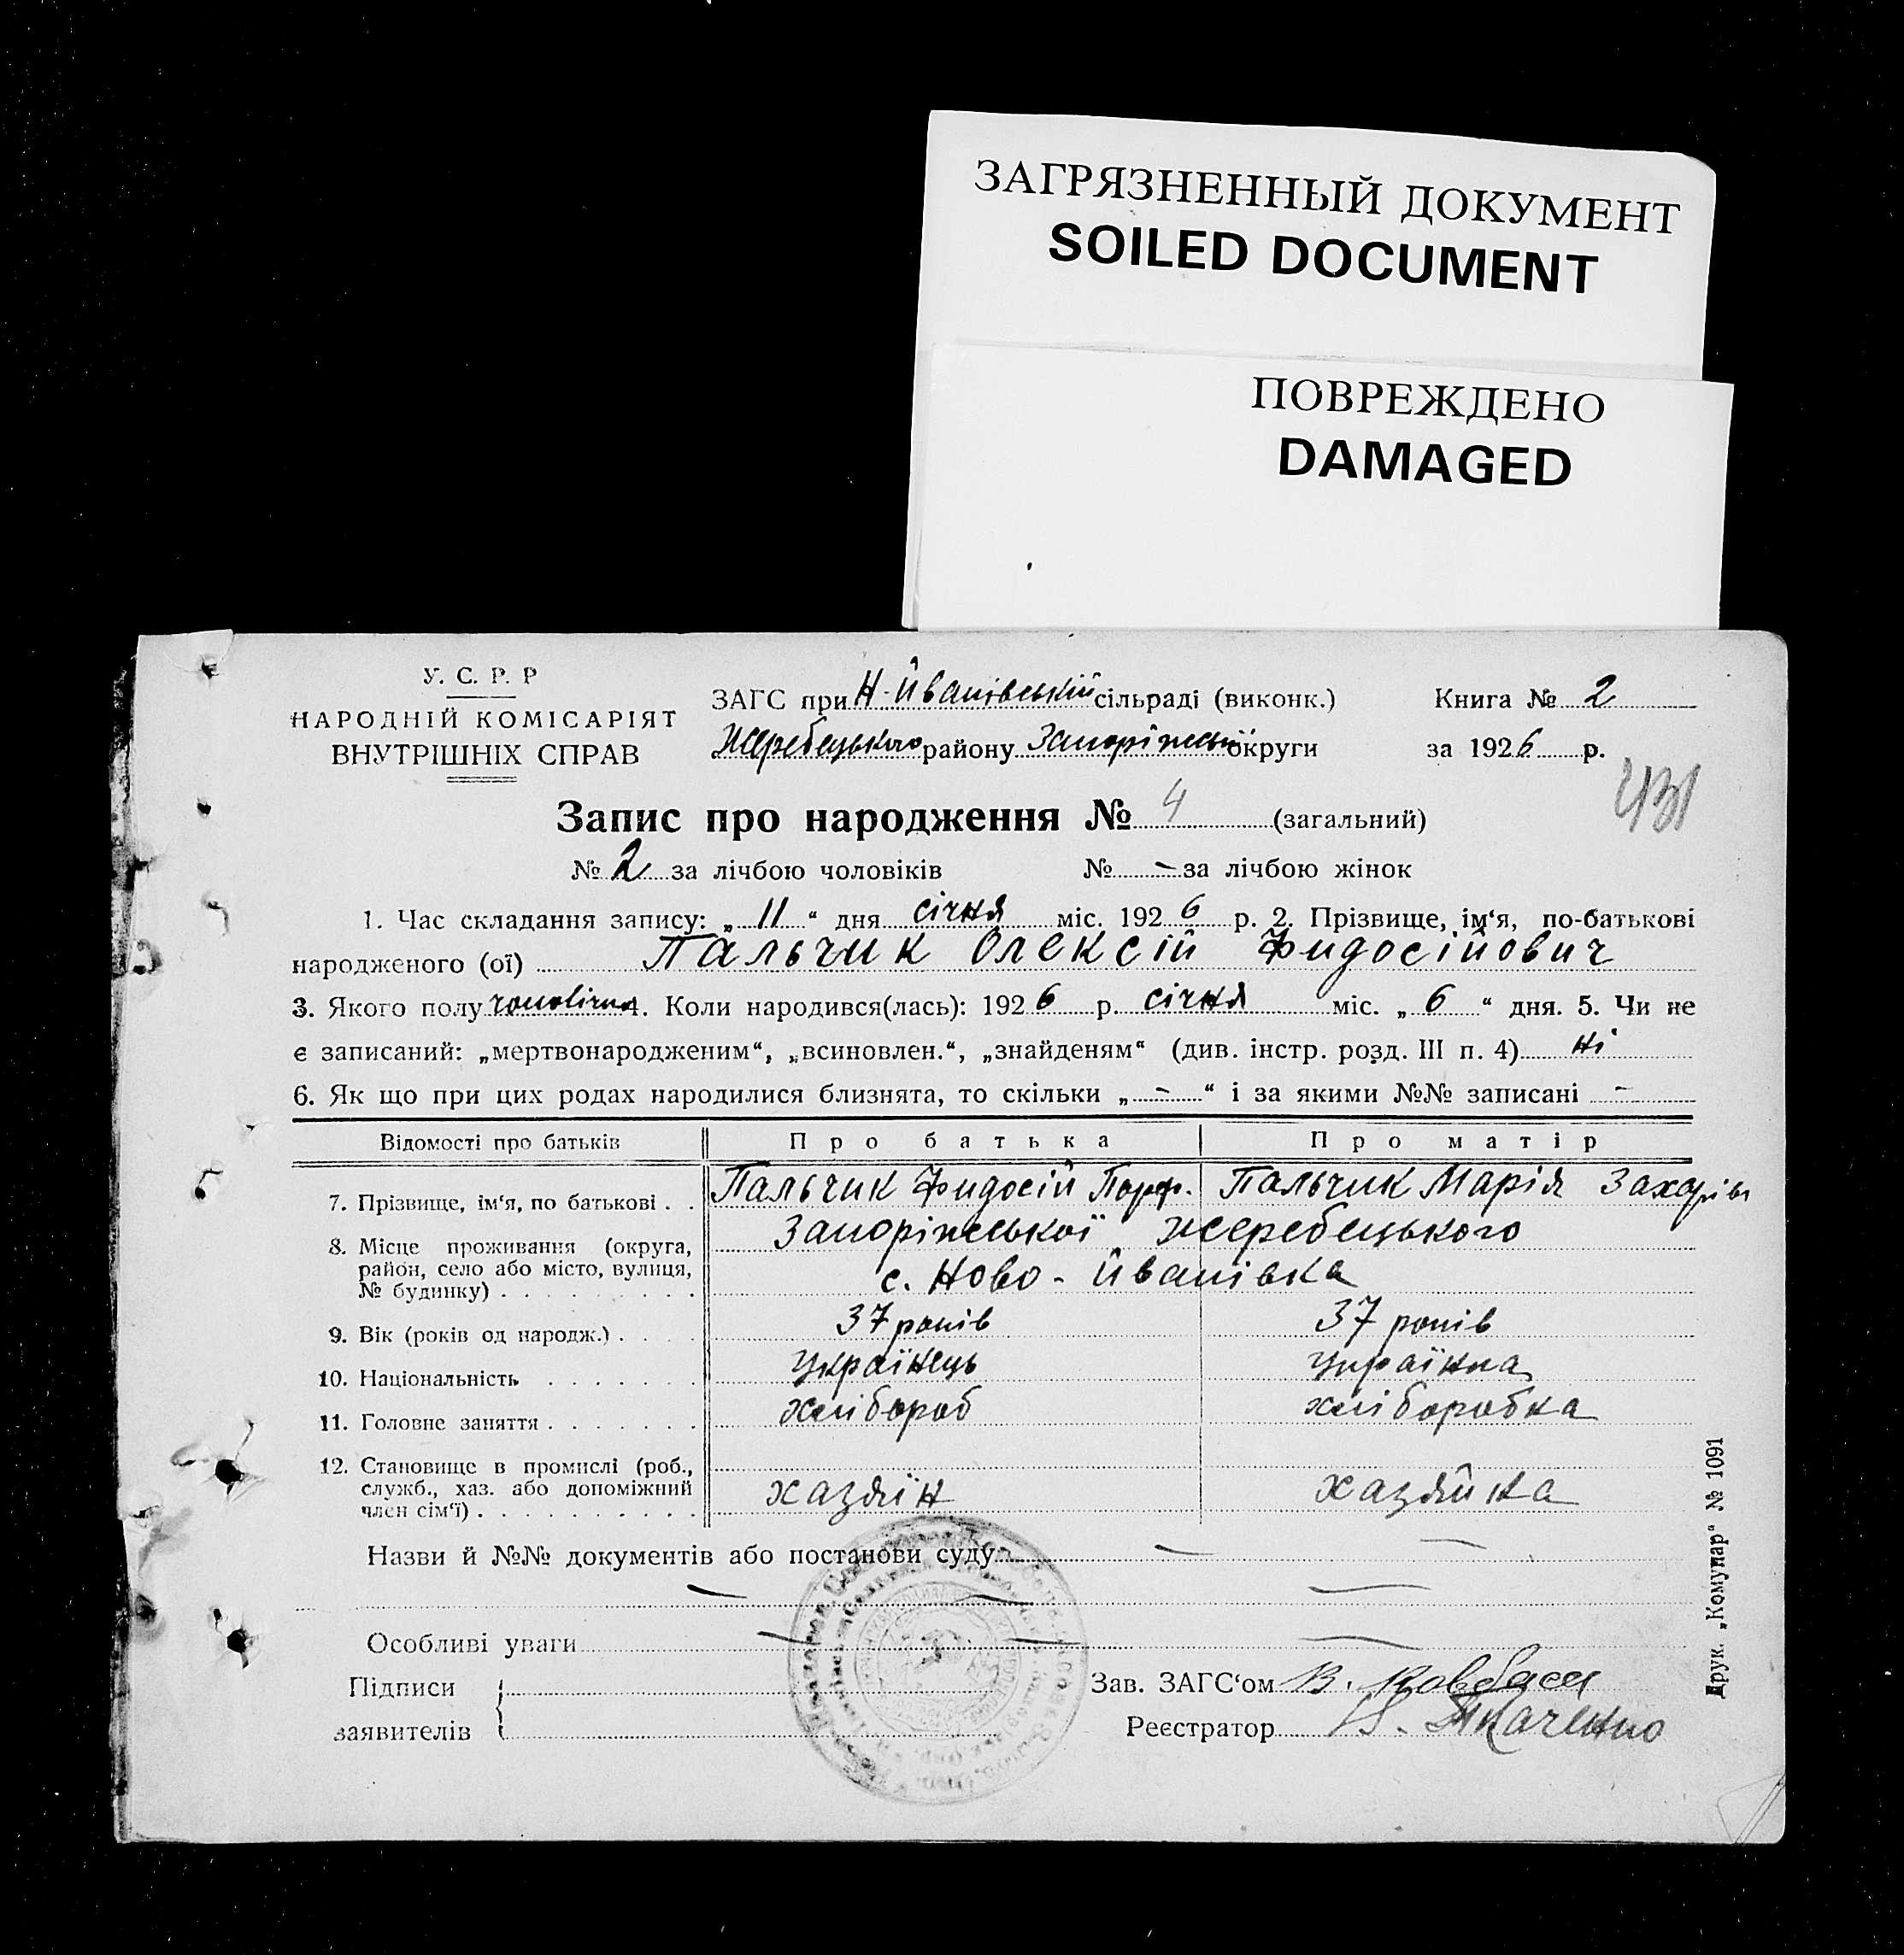 ЗАГРЯЗНЕННЫЙ ДОКУМЕНТ
SOILED DOCUMENT
ПОВРЕЖДЕНО
DAMAGED
У. С. Р. Р
НАРОДНІЙ КОМІСАРІЯТ
ВНУТРІШНІХ СПРАВ
ЗАГС при Н-Йванівській сільраді (виконк.)
Книга № 2
Жеребецького району Запоріжської округи
за 1926 р.
431
Запис про народження № 4 (загальний)
№ 2 за лічбою чоловіків № - за лічбою жінок
1. Час складання запису: „ 11 “ дня січня міс. 1926 р. 2. Прізвище, ім‘я, по-батькові
народженого (ої) Пальчик Олексій Фидосійович
3. Якого полу чоловіч. 4. Коли народився(лась): 1926 р. січня міс. „ 6 “ дня. 5. Чи не
є записаний: „мертвонародженим“, „всиновлен.“, „знайденям“ (див. інстр. розд. III п. 4) ні
6. Як що при цих родах народилися близнята, то скільки „ - “ і за якими №№ записані -
Відомості про батьків Про батька Про матір
7. Прізвище, ім‘я, по батькові . . Пальчик Фидосій Порф. Пальчик Марія Захарів
8. Місце проживання (округа, Запоріжської Жеребецького
район, село або місто, вулиця, с. Ново-Йванівка
№ будинку) . . . . . . . . .
9. Вік (років од народж.) . . . . 37 років 37 років
10. Національність . . . . . . . українець українка
11. Головне заняття . . . . . . . хлібороб хліборобка
12. Становище в промислі (роб.,
служб., хаз. або допоміжний хазяїн хазяйка
член сім‘ї) . . . . . . . . . .
Назви й №№ документів або постанови суду — —
— — —
Особливі уваги — — —
Підписи
заявителів
Зав. ЗАГС‘ом В. Ковбаса
Реєстратор Ткаченко
Друк. „Комунар“ № 1091